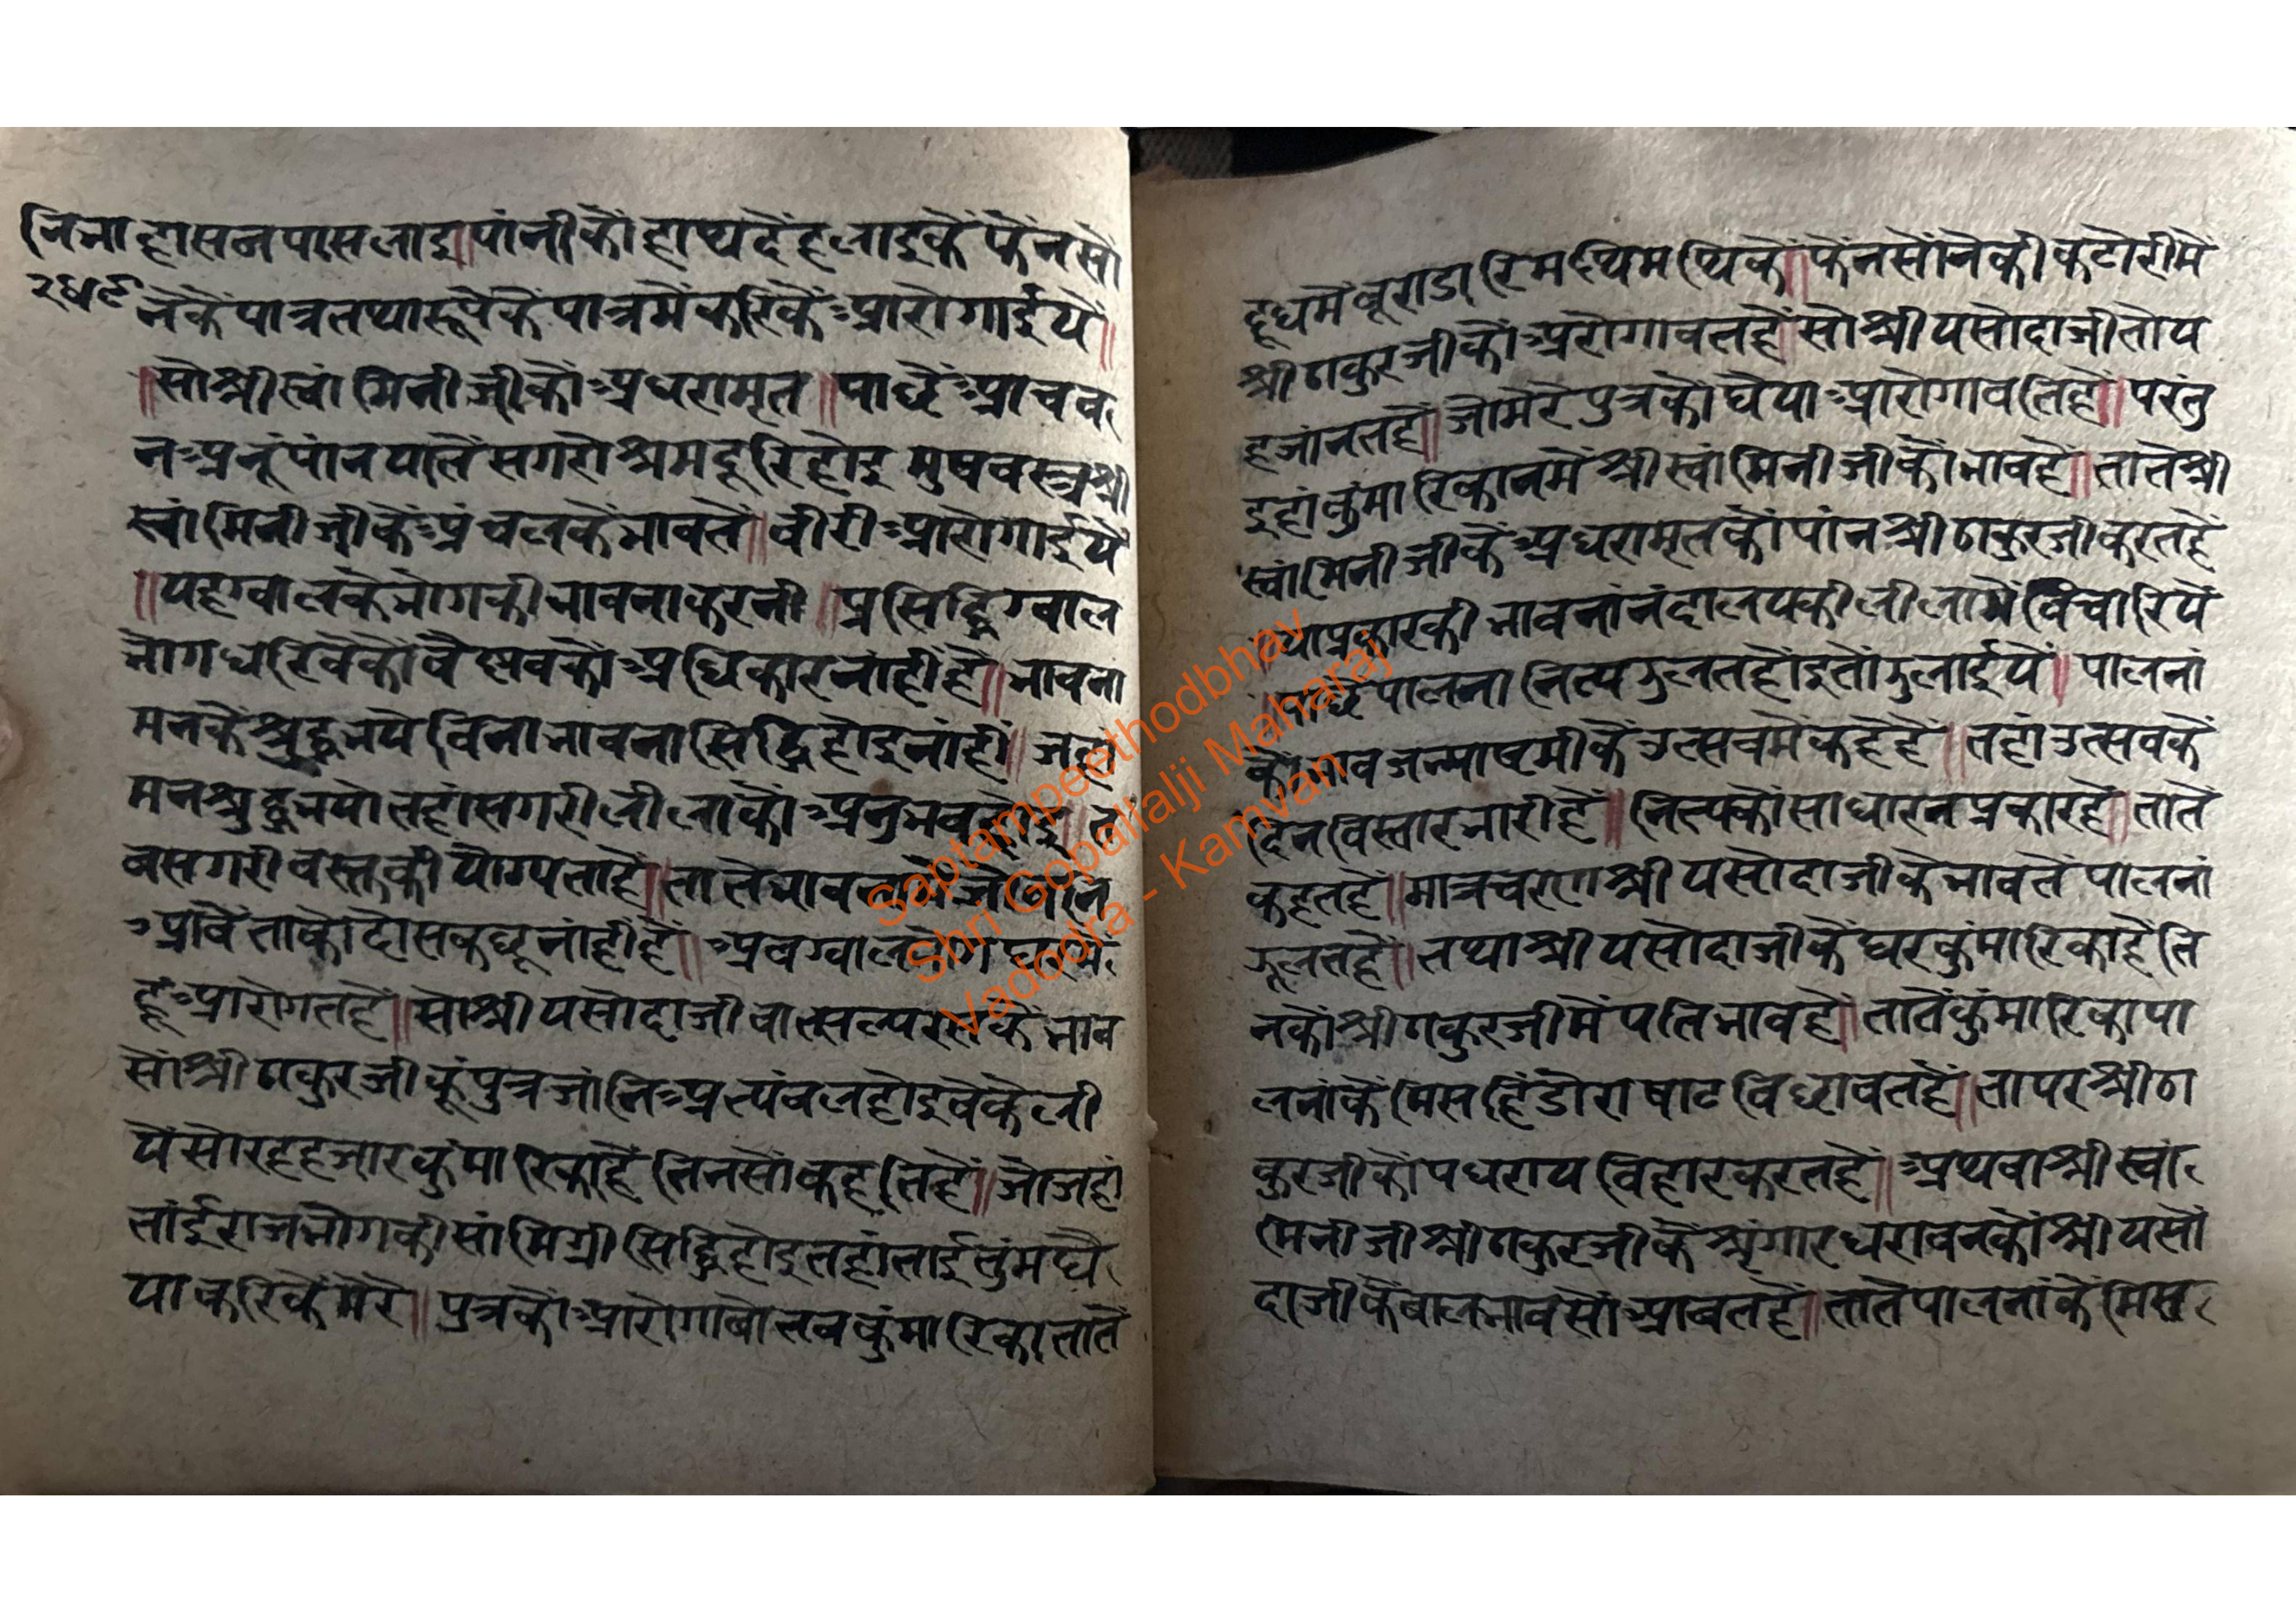 नि भा हासन पास जाइ॥पांनी कौ हाथ दै हलाइकै फैन सौं
२४९ नेके पात्र तथा रूपेके पात्रमें करिकें आरोगाईयें॥
॥सो श्री स्वांमिनी जी कौ अधरामृत॥पाछै आचव
न अनूं पांन पातें सगरो श्रम दूरि होइ मुष वस्त्र श्री
स्वांमिनी जी कें अंचलके भावतें॥बीरी आरोगाईयै
॥यह ग्वालके भोगकी भावना करनी॥प्रसिद्धि ग्वाल
भोग धरिवेकौ वैष्णवकौ अधिकार नांहीं है॥भावना
मनके श्रुद्ध भये विना भावना सिद्धि होइ नांहीं॥जहां
मन श्रुद्ध भयो तहां सगरी लीलाकौ अनुभव होइ॥त
ब सगरी वस्तकी योग्यता है॥तातें भावनामें
आवै ताकौ दोस कछू नांहीं है॥अब ग्वाल भोग घरमें
हूं आरोगत है॥सो श्री यसोदाजी वात्सल्य रसके भाव
सों श्री ठाकुरजी कूं पुत्र जांनि अत्यंवल होइवेके ली
यें सोरह हजार कुंमारिका है तिनसों कहति है॥जो जहां
तांई राजभोगकी सांमिग्री सिद्धि होइ तहां तांई तुंम घै
या करिकें मेरे॥पुत्रकौं आरोगावो तब कुंमारिका तातें
दूधमें बूरा डारि मथि मथिकें॥फैन सोंनेकी कटोरीमें
श्री ठाकुरजीकौ अरोगावत है॥सो श्री यसोदाजी तो य
ह जांनत है॥जो मेरे पुत्रकौ घैया आरोगावति है॥परंतु
इहां कुंमारिकानमें श्री स्वांमिनीजीकौ भाव है॥तातें श्री
स्वांमिनीजीकें अधरामृतकौ पांन श्री ठाकुरजी करत है
॥या प्रकारकी भावनां नंदालयकी लीलामें विचारियें
॥पाछै पालना नित्य झुलत होइ तो झुलाईयें॥पालनां
कौ भाव जन्माष्टमीकें उत्सवमें कहे हैं॥तहां उत्सवकें
दिन विस्तार भारी हैं॥नित्यकौ साधारन प्रकार है॥तातें
कहत है॥मात्रचरण श्री यसोदाजीके भावतें पालनां
झूलत है॥तथा श्री यसोदाजीकें घर कुंमारिका है ति
नकौं श्री ठाकुरजीमें पति भाव है॥तातें कुंमारिका पा
लनांकें मिस हिंडोरा षाट विछावत है॥ता पर श्री ठा
कुरजीकौ पधराय विहार करत है॥अथवा श्री स्वां
मिनीजी श्री ठाकुरजीकें श्रृंगार धरावनकौं श्री यसो
दाजीकें बालभावसों आवत है॥तातें पालनांकें मिस
Saptampeethodbhav
Shri Gopallalji Maharaj
Vadodra - Kamvan